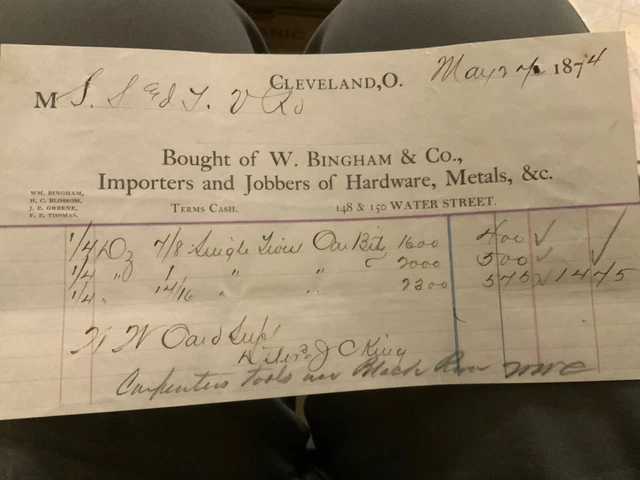 CLEVELAND, O. May 27 1874
M S. S and T. V Ro
Bought of W. BINGHAM & Co.,
Importers and Jobbers of Hardware, Metals, &c.
WM. BINGHAM,
H. C. BLOSSOM,
J. E. GREENE,
F. E. THOMAS.
TERMS CASH. 148 & 150 WATER STREET.
1/4 Dz 7/8 Single Twist Car Bit 1600 400 ✓
1/4 " 1 " " 2000 500 ✓
1/4 " 14/16 " " 2300 575 ✓ 1475
W Card Sup!
J C King
Carpenters tools Black River